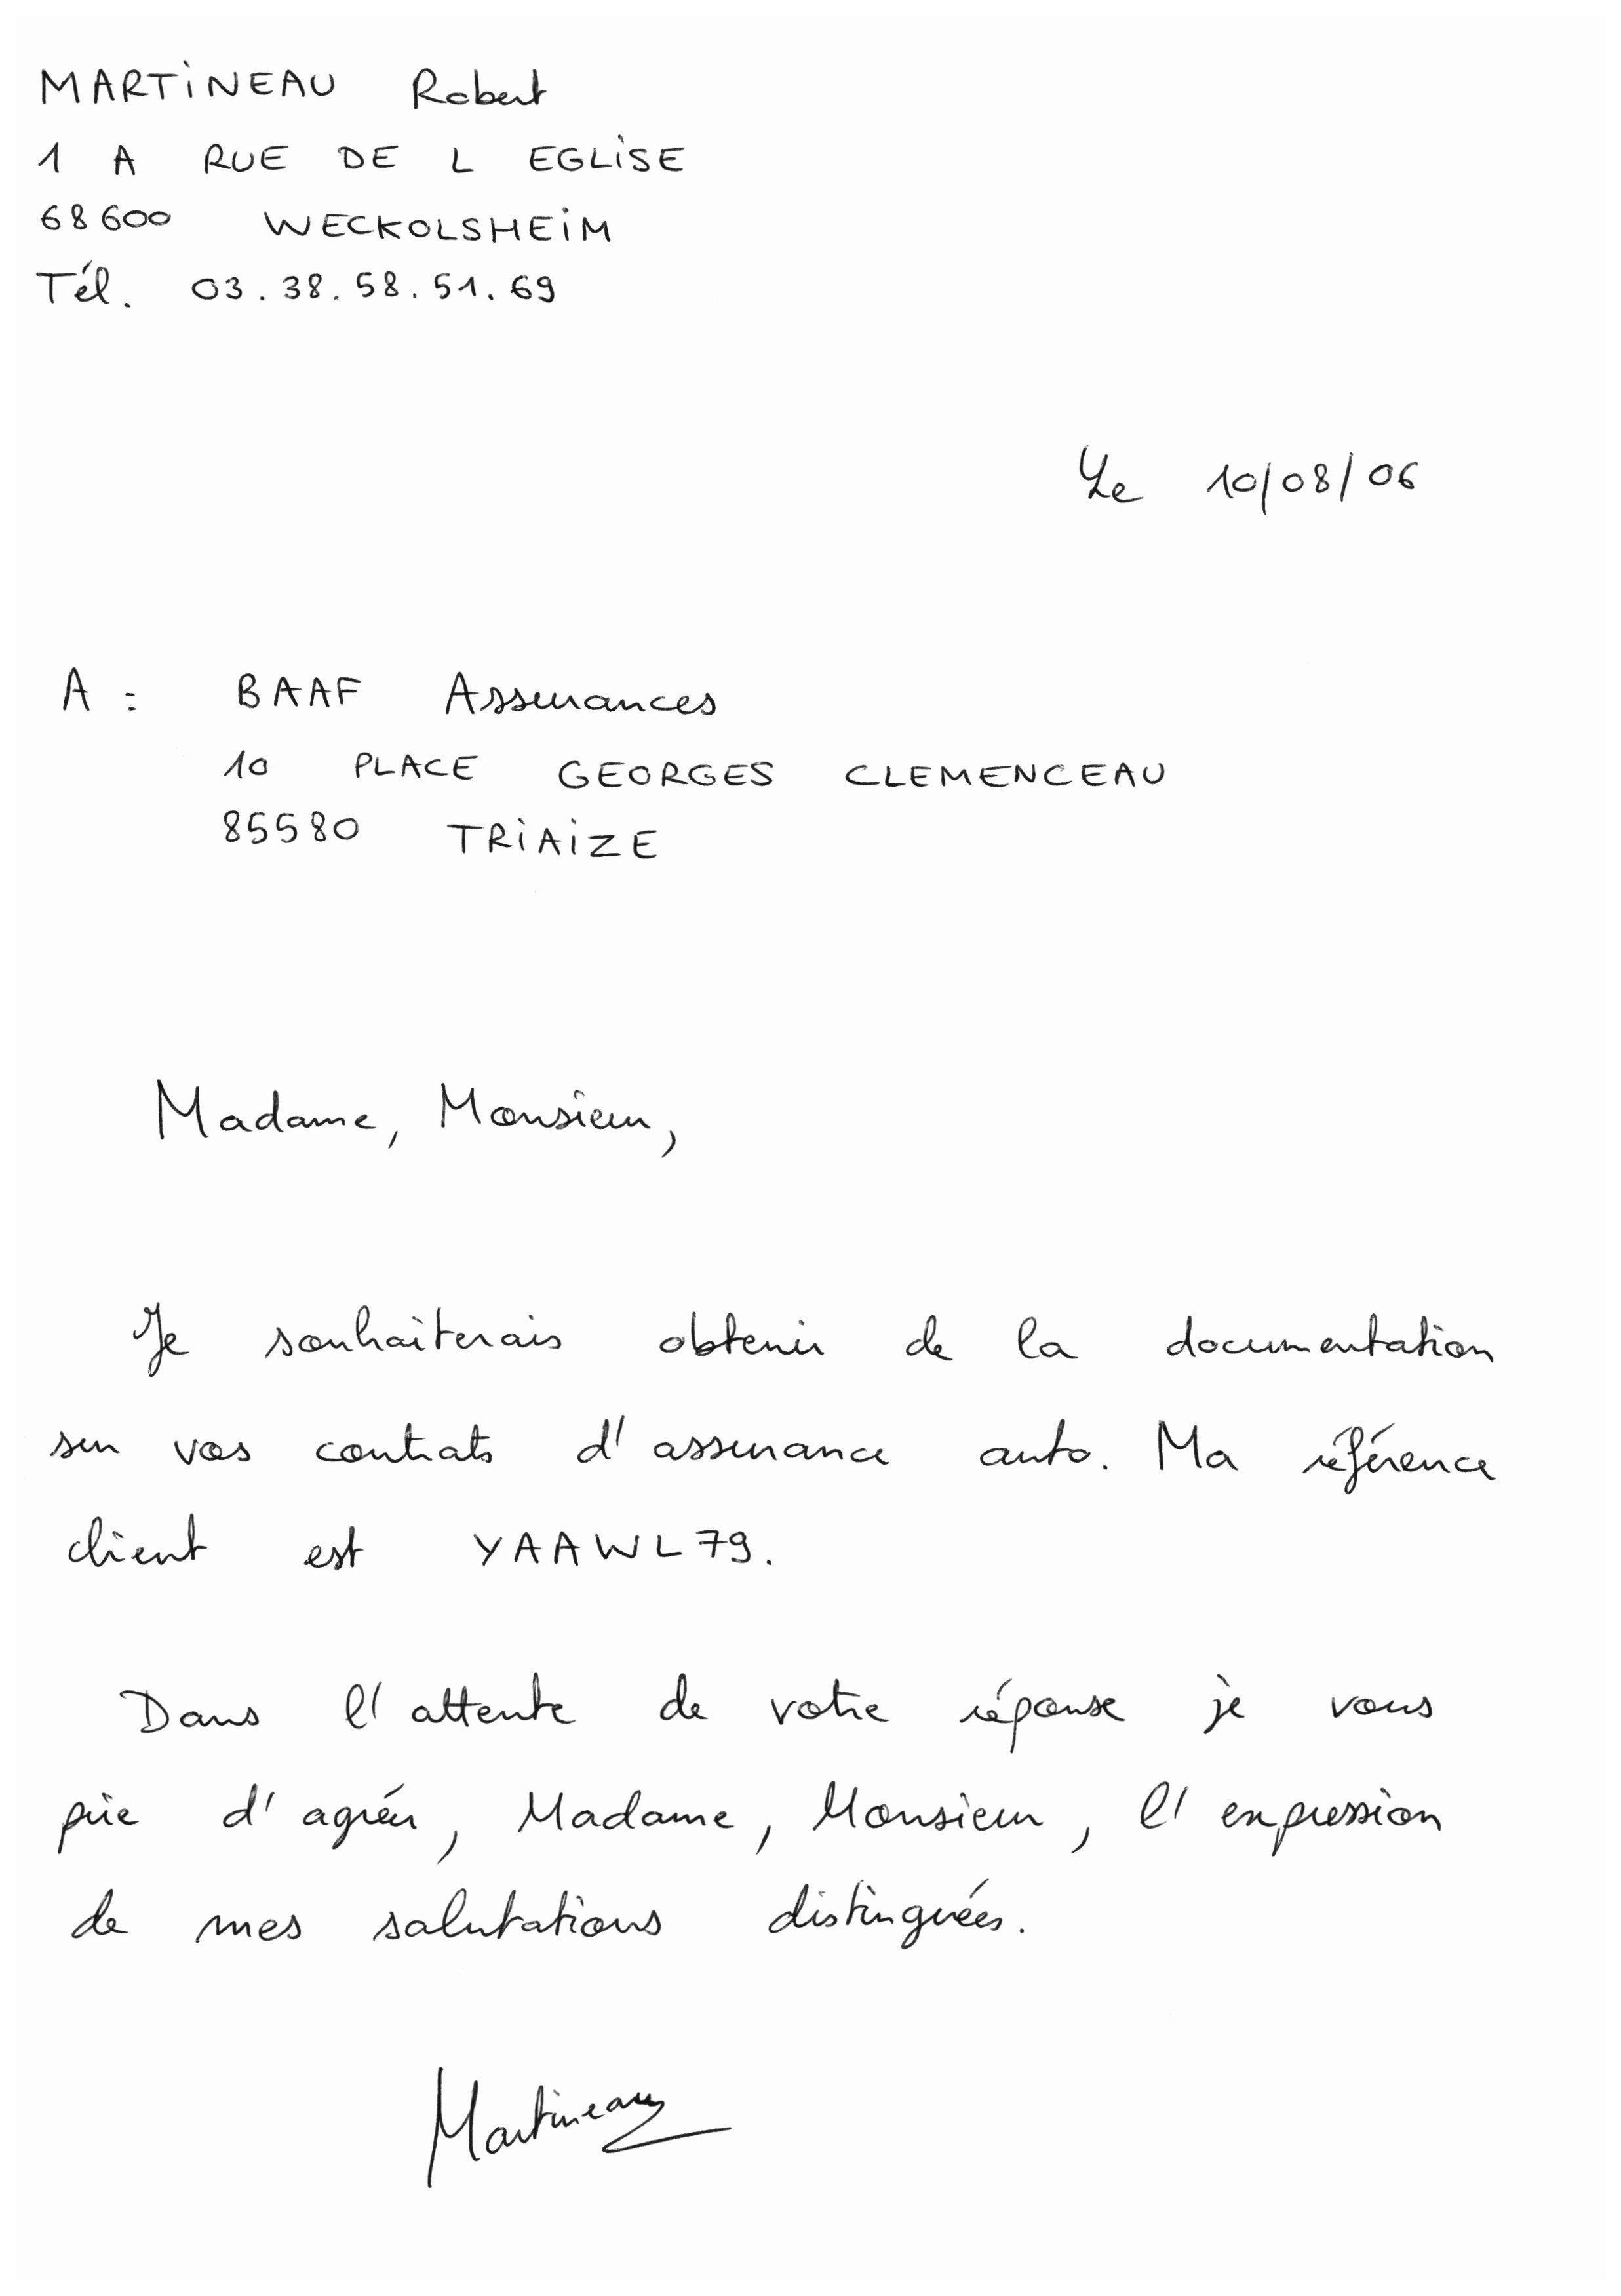 MARTINEAU Robert
1 A RUE DE L EGLISE
68600 WECKOLSHEIM
Tél. 03.38.58.51.69
Le 10/08/06
A : BAAF Assurances
10 PLACE GEORGES CLEMENCEAU
85580 TRIAIZE
Madame, Monsieur,
Je souhaiterais obtenir de la documentation
sur vos contrats d'assurance auto. Ma référence
client est YAAWL79.
Dans l'attente de votre réponse je vous
prie d'agréer, Madame, Monsieur, l'expression
de mes salutations distinguées.
Martineau